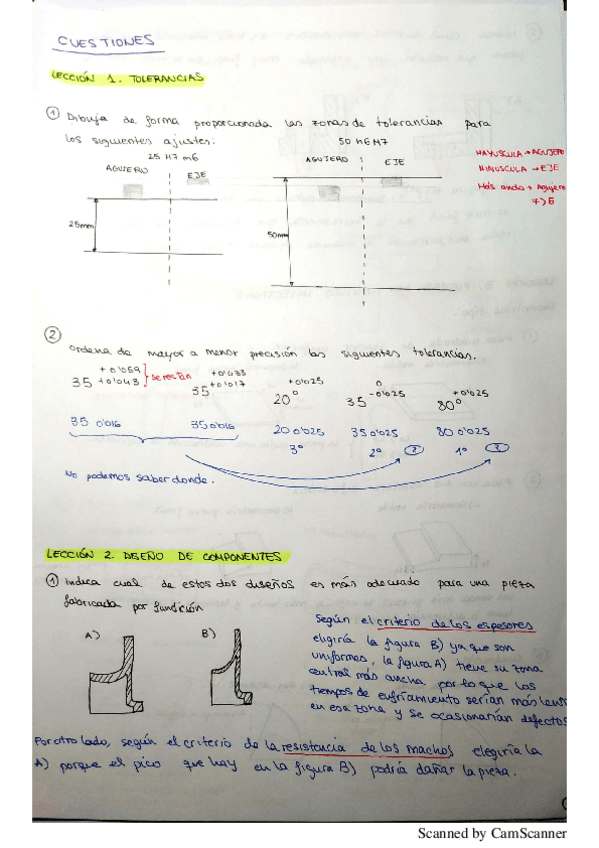 CUESTIONES
LECCIÓN 1. TOLERANCIAS
① Dibuja de forma proporcionada las zonas de tolerancias para
los siguientes ajustes:
25 H7 m6
50 h6 M7
AGUJERO
EJE
AGUJERO
EJE
MAYUSCULA → AGUJERO
MINUSCULA → EJE
Más ancho → Agujero
7 > 6
25mm
50mm
②
Ordena de mayor a menor precisión las siguientes tolerancias.
35 +0'059 +0'043 } se restan
35 +0'033 +0'017
20 +0'025 0
35 0 -0'025
80 +0'025 0
35 0'016
35 0'016
20 0'025
35 0'025
80 0'025
3º
2º
②
1º
No podemos saber donde.
LECCIÓN 2. DISEÑO DE COMPONENTES
① Indica cual de estos dos diseños es más adecuado para una pieza
fabricada por fundición
A)
B)
Según el criterio de los espesores
eligiría la figura B) ya que son
uniformes, la figura A) tiene su zona
central más ancha por lo que los
tiempos de enfriamiento serían más lent
en esa zona y se ocasionarían defectos
Por otro lado, según el criterio de la resistencia de los machos elegiría la
A) porque el pico que hay en la figura B) podría dañar la pieza.
Scanned by CamScanner